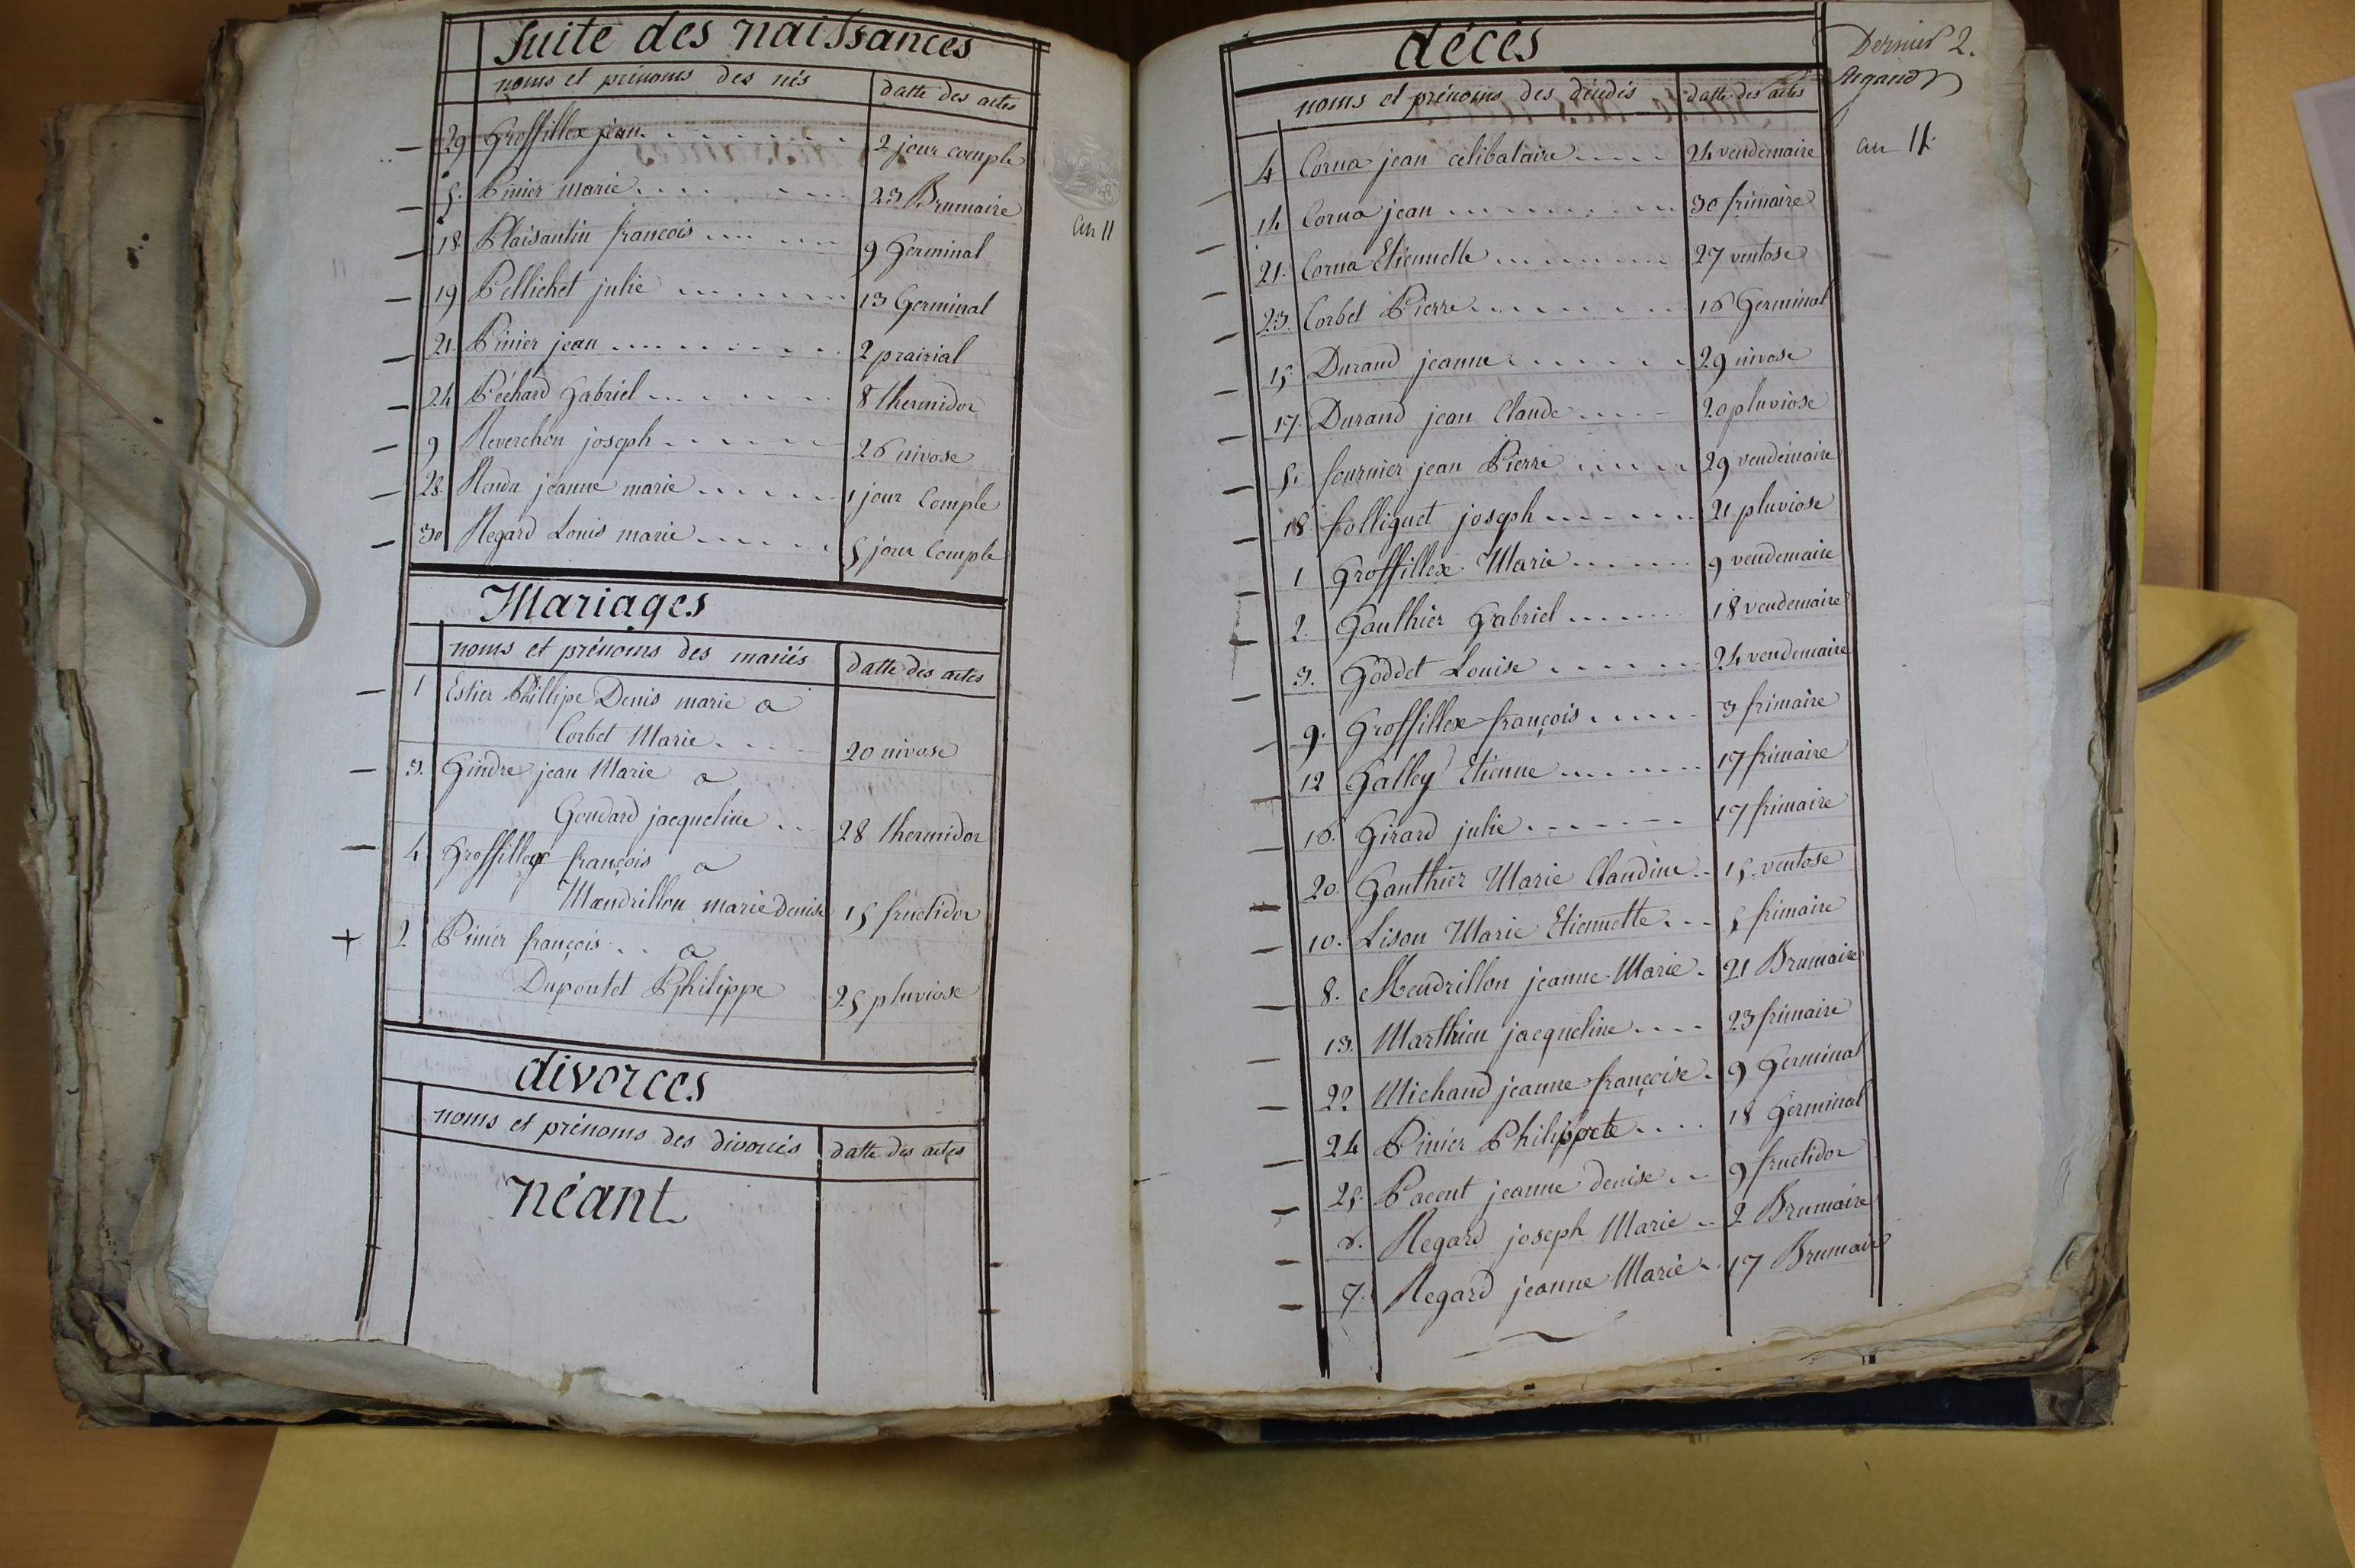 Suite des naissances
noms et prénoms des nés datte des actes
29 Groffillex jean 2 jour comple
5. Pinier marie 23 Brumaire
18. Plaisantin françois 9 Germinal
19 Pellichet julie 13 Germinal
21. Pinier jean 2 prairial
24 Péchard Gabriel 8 thermidor
9 Reverchon joseph 26 nivose
28. Rendu jeanne marie 1 jour Comple
30 Regard Louis marie 5 jour Comple
an 11
Mariages
noms et prénoms des mariés datte des actes
1 Estier Phillipe Denis marie a
Corbet Marie 20 nivose
3. Gindre jean Marie a
Goudard jacqueline 28 thermidor
4 Groffillex françois a
Mandrillon marie denise 15 fructidor
+ 2 Pinier françois a
Dupontet Philippe 25 pluviose
divorces
noms et prénoms des divorcés datte des actes
néant
décès
Dernier 2.
noms et prénoms des décédés datte des actes
an 11
4 Corna jean celibataire 24 vendemaire
14 Corna jean 30 frimaire
21. Corna Etiennette 27 ventose
23. Corbet Pierre 16 Germinal
15. Durand jeanne 29 nivose
17. Durand jean Claude 20 pluviose
5. fournier jean Pierre 29 vendemaire
18 folliguet joseph 21 pluviose
1 Groffillex Marie 9 vendemaire
2. Gauthier Gabriel 18 vendemaire
3. Goddet Louise 24 vendemaire
9. Groffillex françois 3 frimaire
12 Galley Etienne 17 frimaire
16. Girard julie 17 frimaire
20. Gauthier Marie Claudine 15. ventose
10. Lison Marie Etiennette 5 frimaire
8. Mendrillon jeanne Marie 21 Brumaire
13. Marthieu jacqueline 23 frimaire
22 Michaud jeanne françoise 9 Germinal
24 Pinier Philippete 18 Germinal
25. Pacent jeanne denise 9 fructidor
6. Regard joseph Marie 2 Brumaire
7. Regard jeanne Marie 17 Brumaire